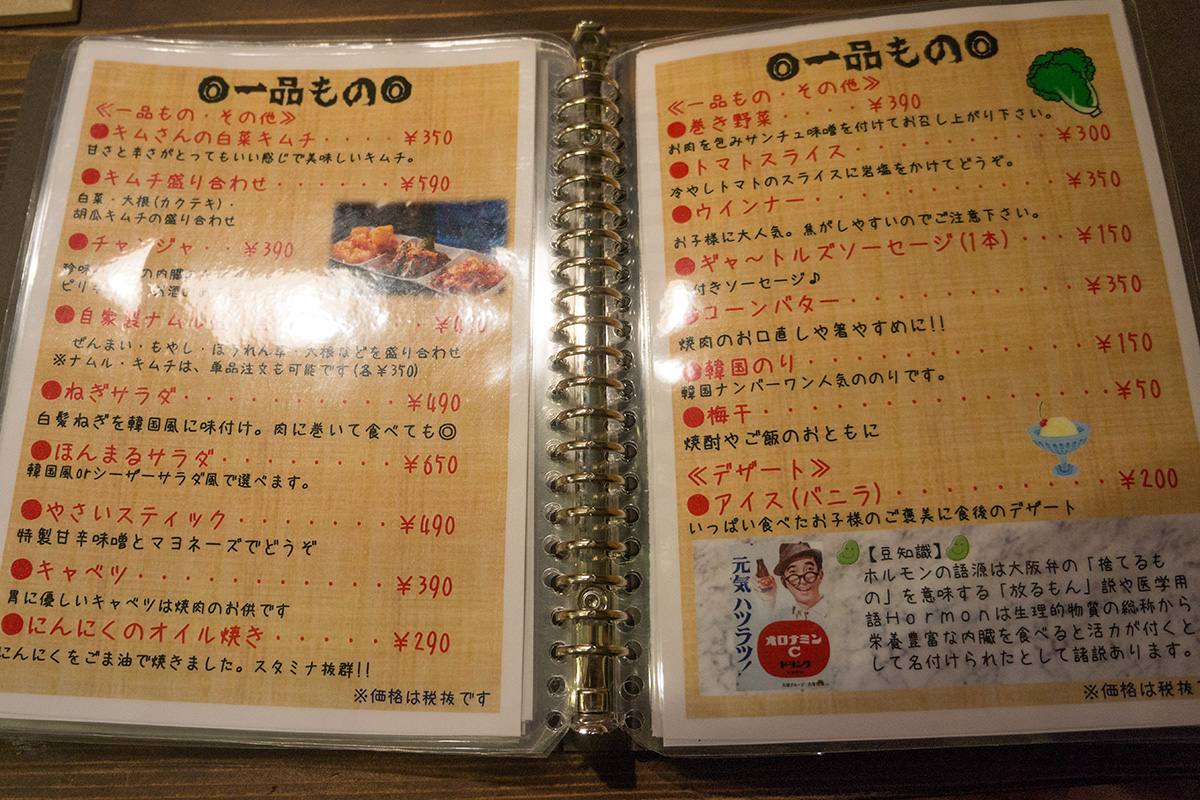 ◎一品もの◎
≪一品もの・その他≫
●キムさんの白菜キムチ・・・・¥350
甘さと辛さがとってもいい感じで美味しいキムチ。
●キムチ盛り合わせ・・・・・・¥590
白菜・大根(カクテキ)・
胡瓜キムチの盛り合わせ
●チャンジャ・・¥390
珍味 の内臓の
ピリ
●自家製ナムル
ぜんまい・もやし・ほうれん草・大根などを盛り合わせ
※ナムル・キムチは、単品注文も可能です(各¥350)
●ねぎサラダ・・・・・・・・・¥490
白髪ねぎを韓国風に味付け。肉に巻いて食べても◎
●ほんまるサラダ・・・・・・・¥650
韓国風orシーザーサラダ風で選べます。
●やさいスティック・・・・・・¥490
特製甘辛味噌とマヨネーズでどうぞ
●キャベツ・・・・・・・・・・¥390
胃に優しいキャベツは焼肉のお供です
●にんにくのオイル焼き・・・・¥290
にんにくをごま油で焼きました。スタミナ抜群!!
※価格は税抜です
◎一品もの◎
≪一品もの・その他≫
●巻き野菜・・・・¥390
お肉を包みサンチュ味噌を付けてお召し上がり下さい。
●トマトスライス・・・・・・・¥300
冷やしトマトのスライスに岩塩をかけてどうぞ。
●ウインナー・・・・・・・・・¥350
お子様に大人気。焦がしやすいのでご注意下さい。
●ギャ〜トルズソーセージ(1本)・・・¥150
付きソーセージ♪
●コーンバター・・・・・・・・¥350
焼肉のお口直しや箸やすめに!!
●韓国のり・・・・・・・・・・¥150
韓国ナンバーワン人気ののりです。
●梅干・・・・・・・・・・・・¥50
焼酎やご飯のおともに
≪デザート≫
●アイス(バニラ)・・・・・・・¥200
いっぱい食べたお子様のご褒美に食後のデザート
元気ハツラツ!
オロナミン
C
ドリンク
【豆知識】
ホルモンの語源は大阪弁の「捨てるも
の」を意味する「放るもん」説や医学用
語Hormonは生理的物質の総称から
栄養豊富な内臓を食べると活力が付くと
して名付けられたとして諸説あります。
※価格は税抜